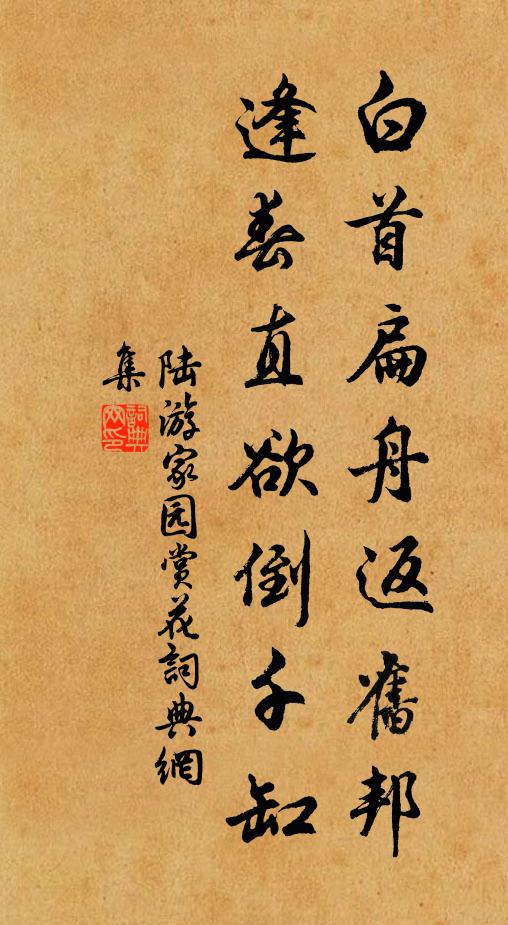 白首扁舟返舊邦
逢春直欲倒千缸
陆游家园赏花詞典網
集
詞典
网印